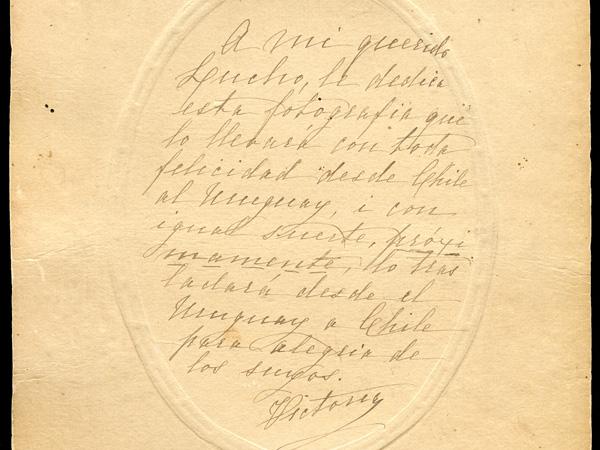 A mi querido
Lucho, le dedica
esta fotografia que
lo llevará con toda
felicidad desde Chile
al Uruguay, i con
igual suerte, próxi
mamente, lo tras
ladara desde el
Uruguay a Chile
para alegria de
los suyos.
Victoria